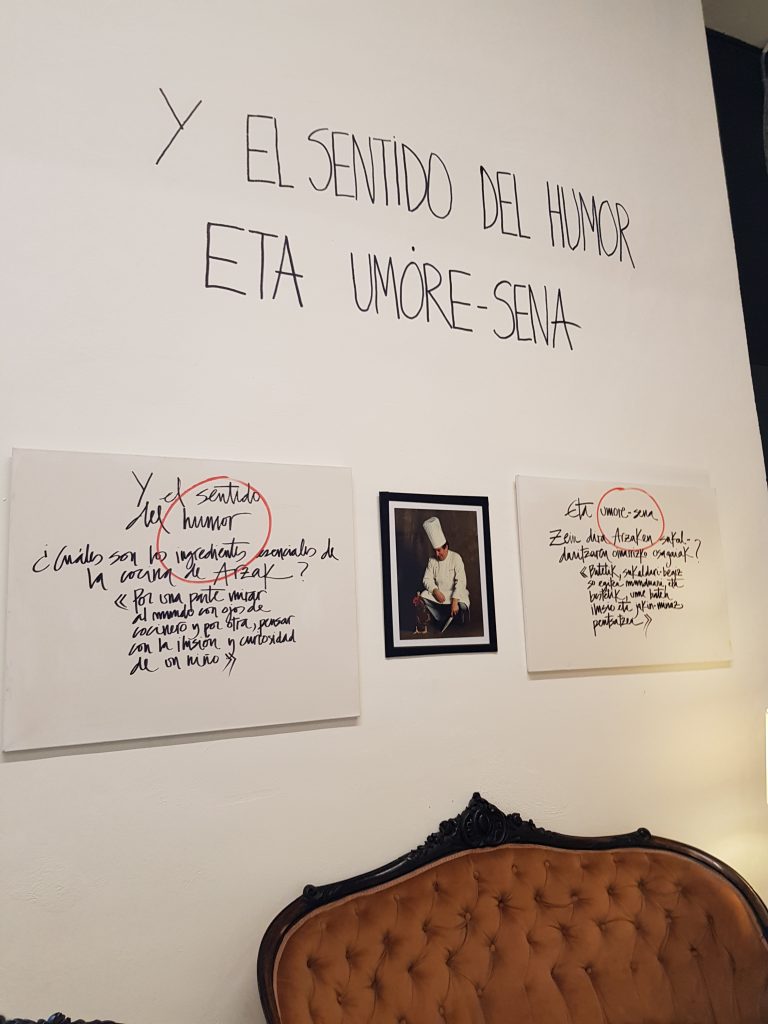 Y EL SENTIDO DEL HUMOR
ETA UMORE-SENA
Y el sentido
del humor
¿Cuáles son los ingredientes esenciales de
la cocina de Arzak?
«Por una parte mirar
al mundo con ojos de
cocinero y por otra, pensar
con la ilusión y curiosidad
de un niño»
Eta umore-sena
Zein dira Arzaken sukal-
daritzaren oinarrizko osagaiak?
«Batetik, sukaldari-begiz
so egitea munduari, eta
bestetik, ume baten
ilusio eta jakin-minaz
pentsatzea»